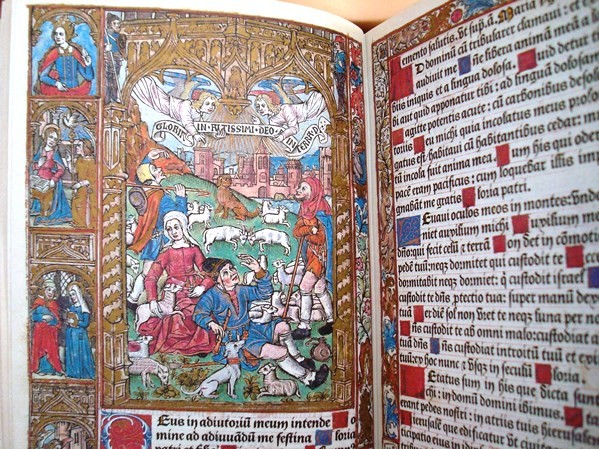 GLORIA · IN · ALTISSIMI · DEO · IN TERRA · P
Eus in adiutorium meum intende
mine ad adiuuādū me festina loria
emento salutis. Ut sup.a. Maria
D dominū cū tribularer clamaui: et
audiuit me ne libera animā mea a
biis iniquis et a lingua dolosa. uid detur
bi aut quid apponatur tibi: ad linguā dolosā
agitte potentis acute: cū carbonibus desola
toriis eu michi quia incolatus meus prolo
gatus est: habitaui cū habitantibus cedar: mul
tū incola fuit anima mea um his qui oder
pacē eram pacificus: cum loquebar illis imp
gnabāt me gratis loria patri.
Euaui oculos meos in montes:
niet auxilium michi uxilium me
dño: qui fecit celū z terrā on det in cōmotiō
pedē tuū: neqz dormitet qui custodit te
dormitabit neqz dormiet: q custodit israel
custodit te dñs ptectio tua: super manū dex
diem sol non vret te neqz luna per noctem
ñs custodit te ab omni malo: custodiat
tuā dñs ñs custodiat introitū tuū et exi
tuū: ex hoc nunc z usqz in seculū loria.
Etatus sum in his que dicta sunt
in domū domini ibimus. tantes
erant pedes nostri: in atriis tuis hierusalē
ierusalē que edificatur vt ciuitas: cuius
participatio eius in idipsum